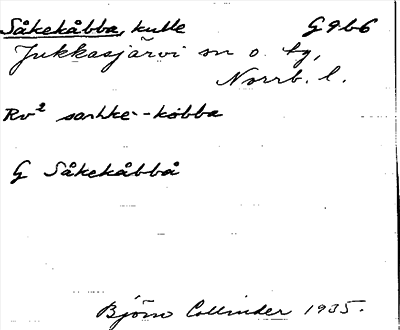 Såkekåbba, kulle G9b6
Jukkasjärvi sn o. tg,
Norrb. l.
Rv² sashke--kobba
G Såkekåbbå
Björn Collinder 1935.